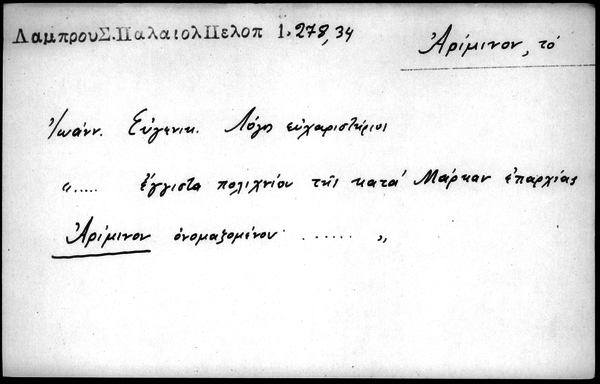 ΛαμπρουΣ.ΠαλαιολΠελοπ 1, 278, 34
Ἀρίμινον, τό
Ἰωάνν. Εὐγενικ. Λόγος εὐχαριστήριος
"..... ἔγγιστα πολιχνίου τῆς κατά Μάρκαν ἐπαρχίας
Ἀρίμινον ὀνομαζομένου ...... "